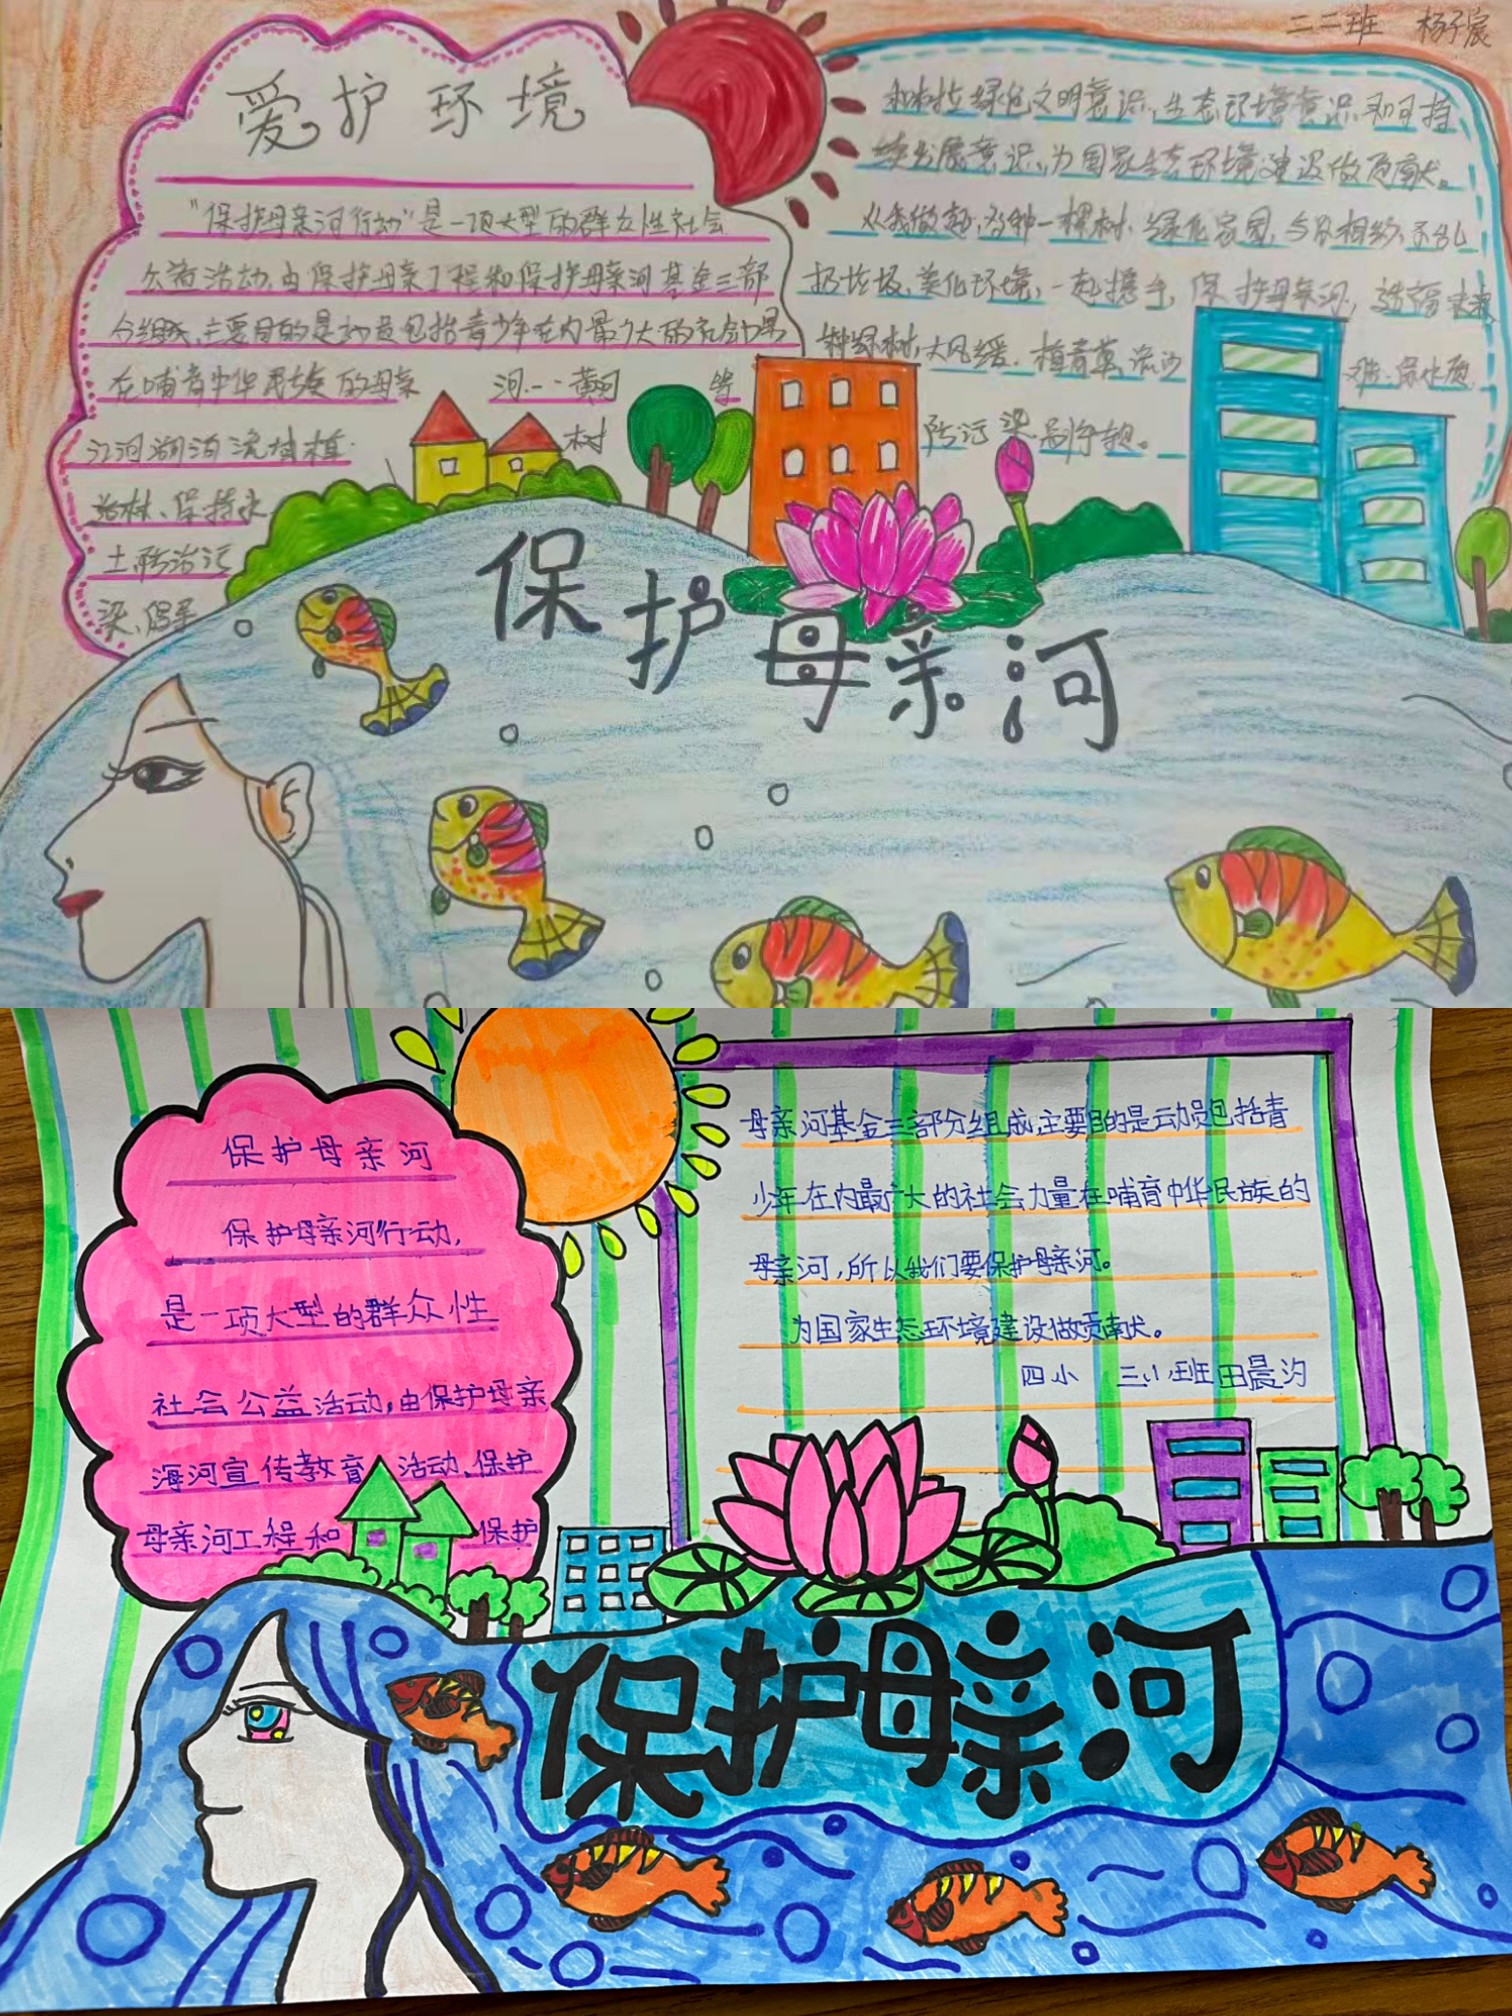 二二班 杨子宸
爱护环境
"保护母亲河行动"是一项大型的群众性社会
公益活动,由保护母亲工程和保护母亲河基金三部
分组成,主要目的是动员包括青少年在内最广大的社会力量
在哺育中华民族的母亲 河··黄河 等
江河湖河流域植 树
造林、保持水
土防治污
染、倡导
和树立绿色文明意识,生态环境意识和可持
续发展意识,为国家生态环境建设做贡献。
从我做起,各种一棵树,绿化家园,与君相约,不乱
扔垃圾,美化环境,一起携手,保护母亲河,造福
种绿树,大风缓,植青草,流沙 难,保水质
防污染
保护母亲河
保护母亲河
保护母亲河行动,
是一项大型的群众性
社会公益活动,由保护母亲
海河宣传教育 活动、保护
母亲河工程和 保护
母亲河基金三部分组成,主要目的是动员包括青
少年在内最广大的社会力量在哺育中华民族的
母亲河,所以我们要保护母亲河。
为国家生态环境建设做贡献。
四小 三小班田晨汐
保护母亲河